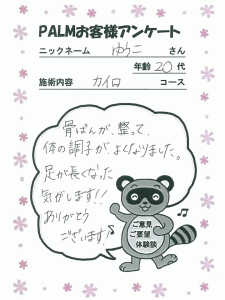 PALMお客様アンケート
ニックネーム ゆうこ さん
年齢 20 代
施術内容 カイロ コース
骨ばんが、整って、
体の調子が、よくなりました。
足が長くなった
気がします!!
ありがとう
ございます!
ご意見
ご要望
体験談